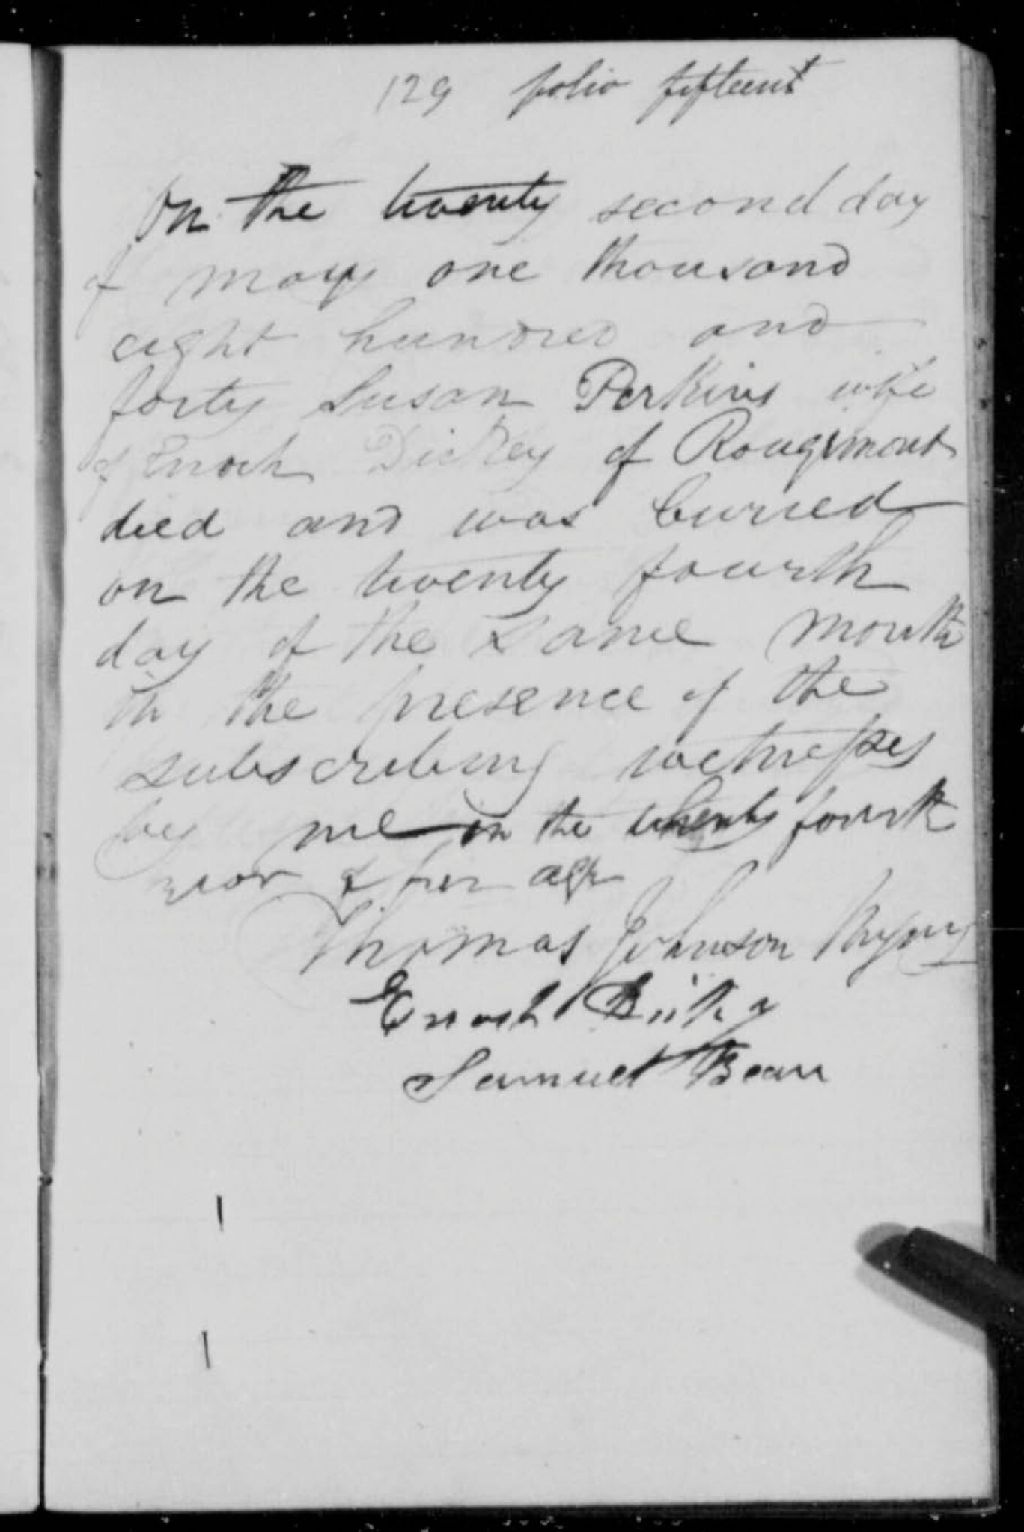 129 folio fifteent
On the twenty second day
of may one thousand
eight hundred and
forty Susan Perkins wife
of Enoch Dickey of Rougemont
died and was buried
on the twenty fourth
day of the same month
in the presence of the
subscribing witnesses
by me in the twenty fourth
year of her age
Thomas Johnson
Enoch Dickey
Samuel Bean